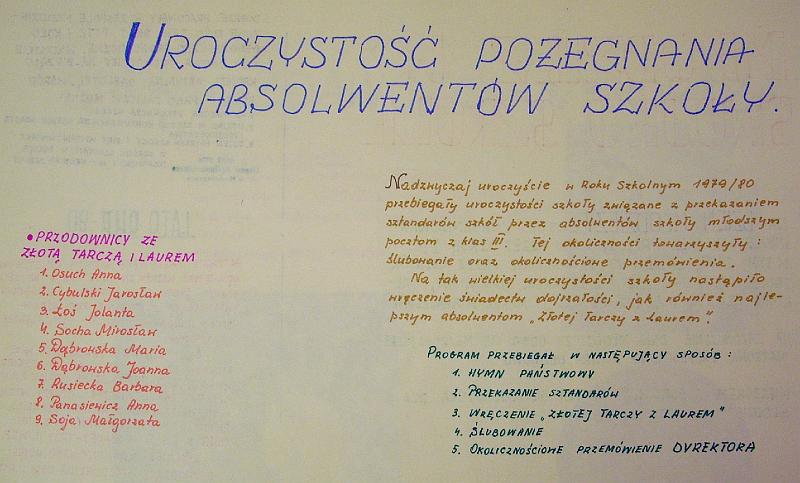 UROCZYSTOŚĆ POŻEGNANIA
ABSOLWENTÓW SZKOŁY.
Nadzwyczaj uroczyście w Roku Szkolnym 1979/80
przebiegały uroczystości szkoły związane z przekazaniem
sztandarów szkół przez absolwentów szkoły młodszym
pocztom z klas III. Tej okoliczności towarzyszyły:
ślubowanie oraz okolicznościowe przemówienia.
Na tak wielkiej uroczystości szkoły nastąpiło
wręczenie świadectw dojrzałości, jak również najle-
pszym absolwentom „Złotej Tarczy z Laurem".
• PRZODOWNICY ZE
ZŁOTĄ TARCZĄ I LAUREM
1. Osuch Anna
2. Cybulski Jarosław
3. Łoś Jolanta
4. Socha Mirosław
5. Dąbrowska Maria
6. Dąbrowska Joanna
7. Rusiecka Barbara
8. Panasiewicz Anna
9. Soja Małgorzata
PROGRAM PRZEBIEGAŁ W NASTĘPUJĄCY SPOSÓB:
1. HYMN PAŃSTWOWY
2. PRZEKAZANIE SZTANDARÓW
3. WRĘCZENIE „ZŁOTEJ TARCZY Z LAUREM"
4. ŚLUBOWANIE
5. OKOLICZNOŚCIOWE PRZEMÓWIENIE DYREKTORA